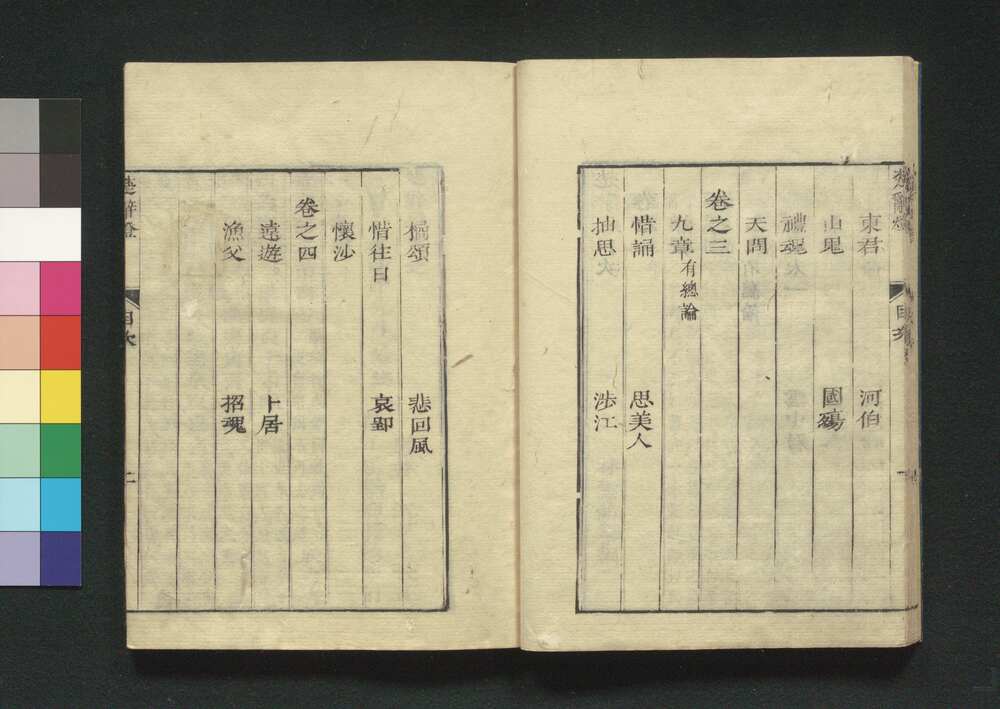 東君 河伯
山鬼 國殤
禮魂
天問
卷之三
九章有總論
惜誦 思美人
抽思 涉江
目次
橘頌 悲回風
惜往日 哀郢
懷沙
卷之四
遠遊 卜居
漁父 招魂
目次
二